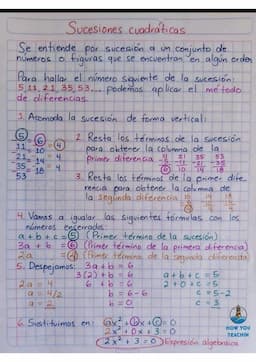 Sucesiones cuadráticas
Se entiende por sucesión a un conjunto de
números o figuras que se encuentran en algún orden
Para hallar el número siguiente de la sucesión:
5, 11, 21, 35, 53... podemos aplicar el método
de diferencias.
1. Acomoda la sucesión de forma vertical:
5
11 = 6
21 = 10 = 4
35 = 14 = 4
53 = 18 = 4
2. Resta los términos de la sucesión
para obtener la columna de la
primer diferencia
11 21 35 53
-5 -11 -21 -35
6 10 14 18
3. Resta los términos de la primer dife-
rencia para obtener la columna de
la segunda diferencia
10 14 18
4. Vamos a igualar las siguientes fórmulas con los
números encerrados:
a + b + c = 5 (Primer término de la sucesión)
3a + b = 6 (Primer término de la primera diferencia)
2a = 4 (Primer término de la segunda diferencia)
5. Despejamos: 3a + b = 6
3(2) + b = 6 a + b + c = 5
2a = 4 6 + b = 6 2 + 0 + c = 5
a = 4/2 b = 6-6 c = 5-2
a = 2 b = 0 c = 3
6. Sustituimos en: ax² + bx + c = 0
2x² + 0x + 3 = 0
2x² + 3 = 0 Expresión algebraica
HOW YOU
TEACHIN